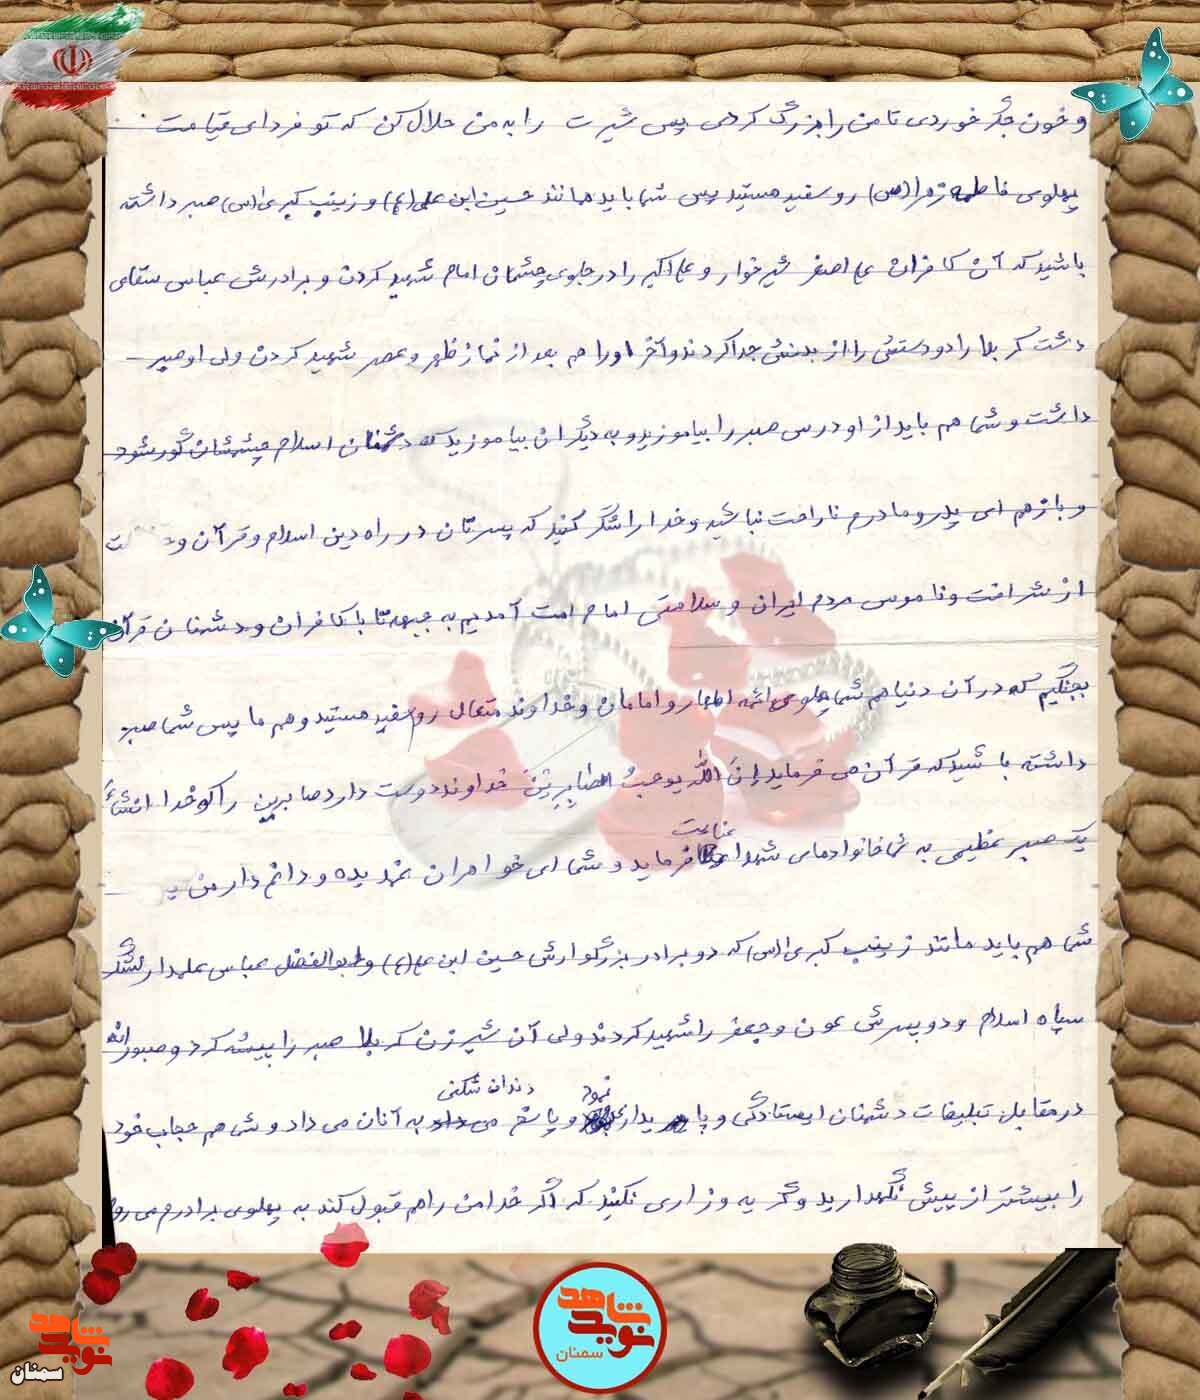 و خون جگر خوردی تا من را بزرگ کردی پس شیرت را به من حلال کن که تو فردای قیامت
پهلوی فاطمه زهرا (س) روسفید هستید پس شما باید مانند حسین ابن علی (ع) و زینب کبری (س) صبر داشته
باشید که آن کافران علی اصغر شیرخوار و علی اکبر را در جلوی چشمان امام شهید کردن و برادرش عباس سقای
دشت کربلا را دو دستش را از بدنش جدا کردند و آخر او را هم بعد از نماز ظهر و عصر شهید کردن ولی او صبر
داشت و شما هم باید از او درس صبر را بیاموزید و به دیگران بیاموزید که دشمنان اسلام چشمشان کور شود
و باز هم ای پدر و مادرم ناراحت نباشید و خدا را شکر کنید که پسرتان در راه دین اسلام و قرآن و
از شرافت و ناموس مردم ایران و سلامتی امام امت آمدیم به جبهه تا با کافران و دشمنان قرآن
بجنگیم که در آن دنیا هم شما پهلوی ائمه اطهار و امامان و خداوند متعال روسفید هستید و هم ما پس شما صبر
داشته باشید که قرآن می فرماید إنَ اللّه یوحبُ الصابرین خداوند دوست دارد صابرین را که خدا انشاءً
یک صبر عظیمی به شما خانوادهای شهدا عنایت فرماید و شما ای خواهران غمدیده و داغدار من
شما هم باید مانند زینب کبری (س) که دو برادر بزرگوارش حسین ابن علی (ع) و ابوالفضل عباس علمدار لشگر
سپاه اسلام و دو پسرش عون و جعفر را شهید کردند ولی آن شیرزن کربلا صبر را پیشه کرد و صبورانه
در مقابل تبلیغات دشمنان ایستادگی و پایداری نمود و پاسخ دندان شکنی به آنان می داد و شما هم حجاب خود
را بیشتر از پیش نگهدارید و گریه و زاری نکنید که اگر خدا من را هم قبول کند به پهلوی برادرم می روم
نوید شاهد
سمنان
نوید شاهد
سمنان